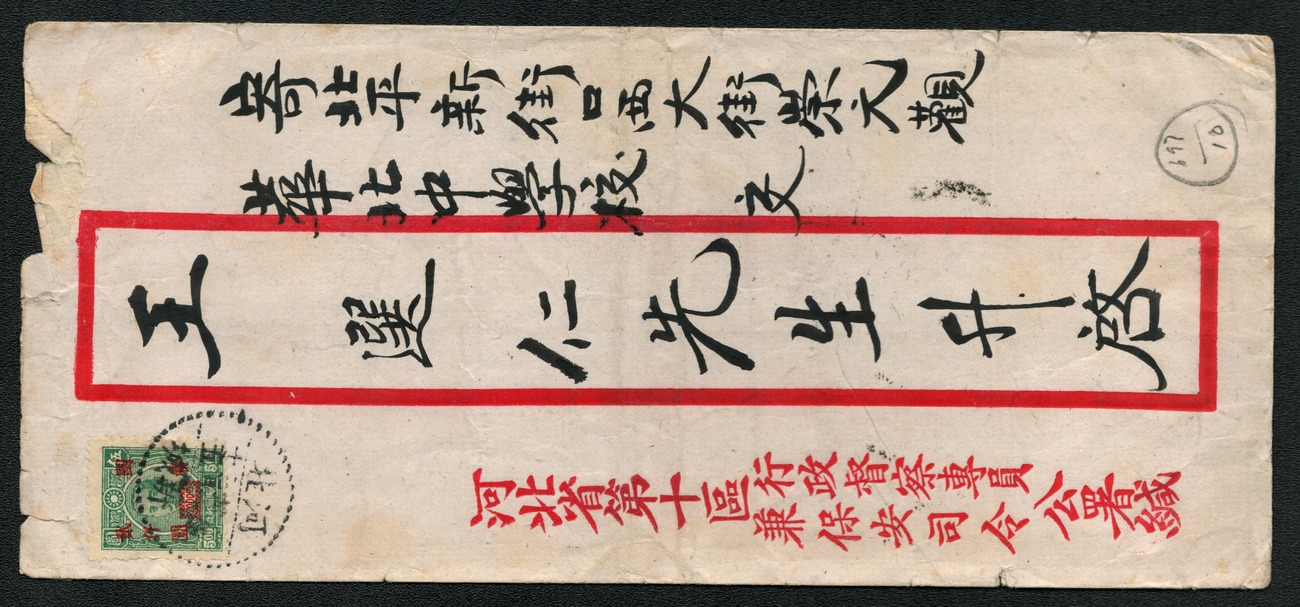 寄北平新街口西大街崇元觀
華北中學校 交
王選仁先生升啓
河北省第十區行政督察專員
兼保安司令
公署緘
河北
697
10